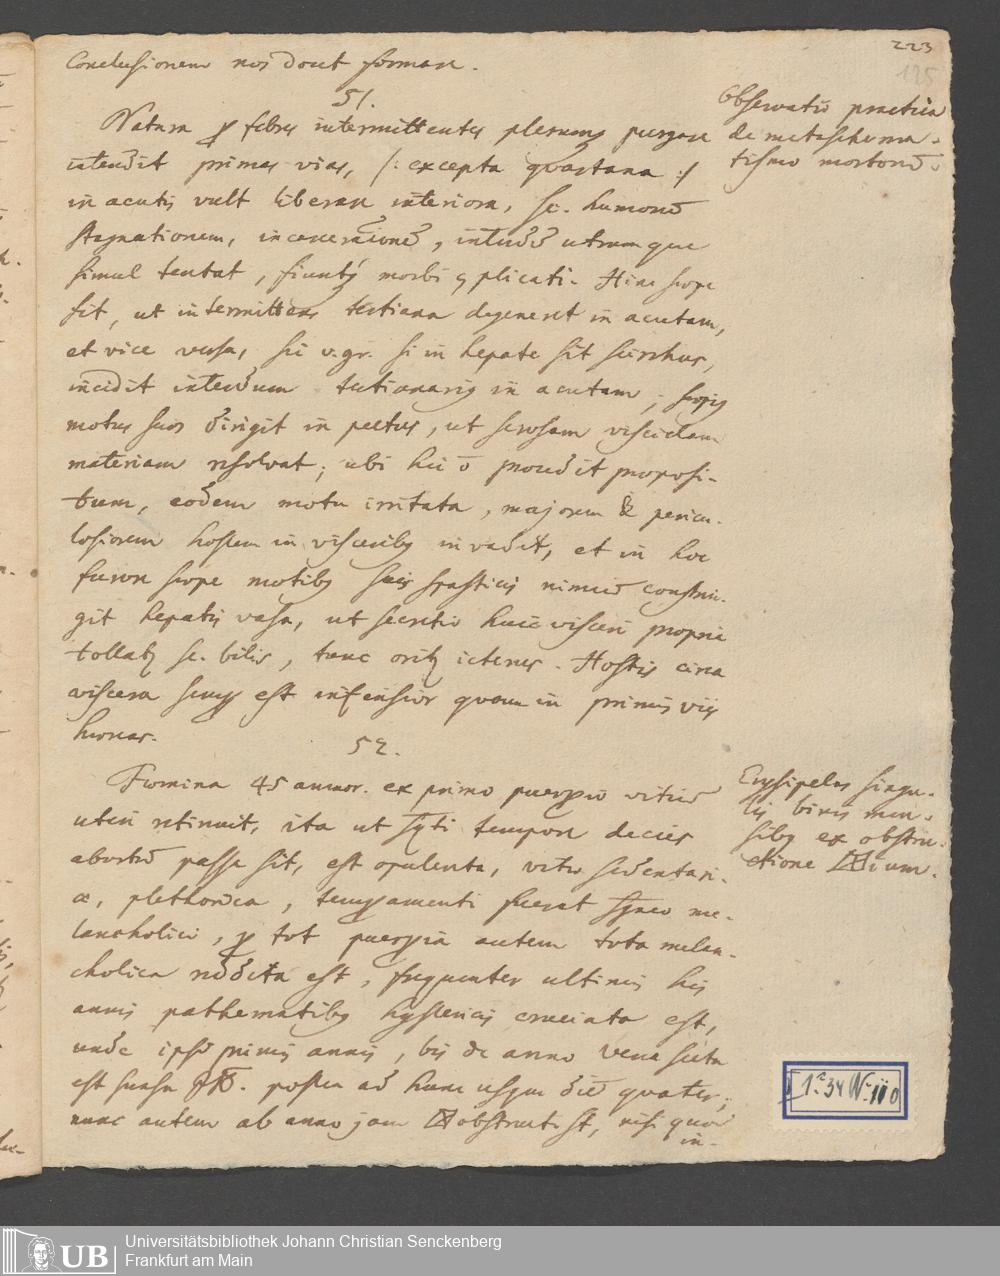 223
125
Conclusionem nos docet formare.
51.
Observatio practica
de metaschema-
tismo morborū.
Natura p febres intermittentes plerumq purgare
intendit primas vias, /: excepta quartana :/
in acutis vult liberare interiora, sc. humorū
stagnationem, incarcerationē, interdū utrumque
simul tentat, fiuntq morbi cplicati. Hinc sæpe
fit, ut intermittens tertiana degeneret in acutam,
et vice versa, sic v. gr. si in hepate sit scirrhus,
incidit interdum tertianarius in acutam, sæpius
motus suos dirigit in pectus, ut serosam viscidam
materiam resolvat; ubi hic ō procedit proposi-
tum, eodem motu irritata, majorem & pericu-
losiorem hostem in visceribus invadit, et in hoc
furore sæpe motibus suis spasticis nimiū constrin-
git hepatis vasa, ut secretio huic visceri propria
tollatq sc. bilis, tunc oritq icterus. Hostis circa
viscera semp est infensior quam in primis viis
hærens.
52.
Erysipelas singu-
lis bimen-
sibus ex obstru-
ctione ium.
Fœmina 45 annor. ex primo puerperio vitiū
uteri retinuit, ita ut tempore decies
abortū passa sit, est opulenta, vitæ sedentari-
æ, plethorica, temperamenti fuerat me-
lancholici, p tot puerperia autem tota melan-
cholica reddita est, frequenter ultimis his
annis pathematibus hystericis cruciata est,
unde ipsi primis annis, bis de anno vena secta
est postea ad hunc usque diē quater;
nunc autem ab anno jam obstruct. st, nisi quod
in-
1 34 N 110
UB
Universitätsbibliothek Johann Christian Senckenberg
Frankfurt am Main